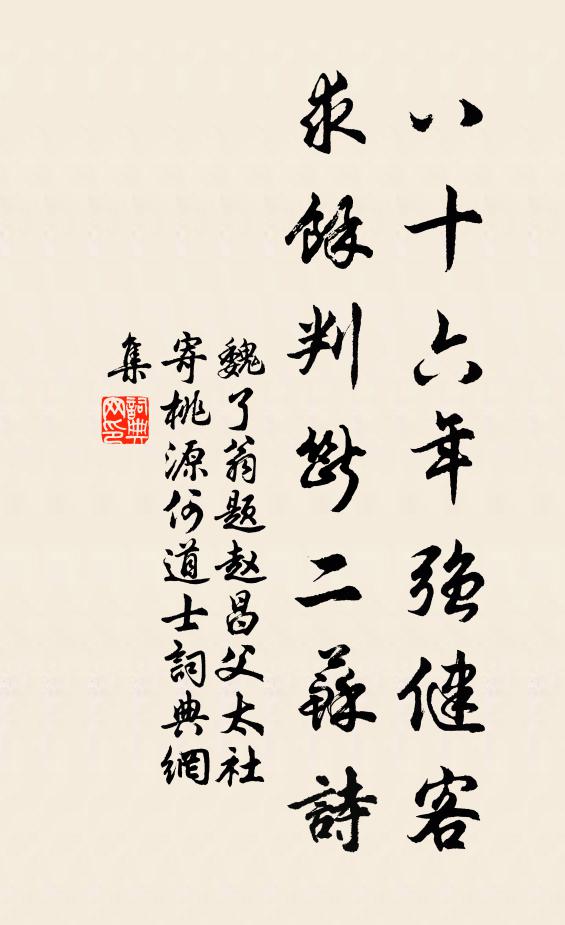 八十六年强健客
求餘判斷二蘇詩
魏了翁题赵昌父太社
寄桃源何道士詞典網
集
詞典網印